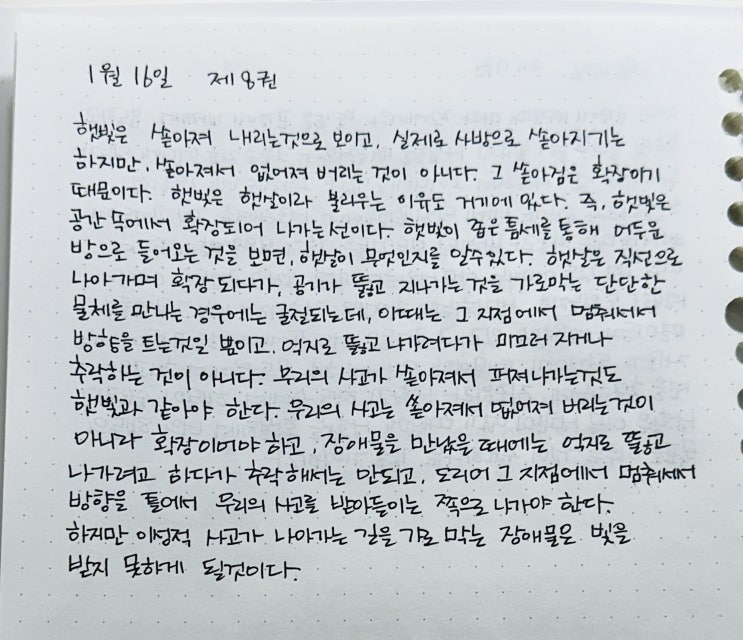 1월 16일 제8권
햇빛은 쏟아져 내리는것으로 보이고, 실제로 사방으로 쏟아지기는
하지만, 쏟아져서 없어져 버리는 것이 아니다. 그 쏟아짐은 확장이기
때문이다. 햇빛은 햇살이라 불리우는 이유도 거기에 있다. 즉, 햇빛은
공간 속에서 확장되어 나가는선이다. 햇빛이 좁은 틈세를 통해 어두운
방으로 들어오는 것을 보면, 햇살이 무엇인지를 알수있다. 햇살은 직선으로
나아가며 확장되다가, 공기가 뚫고 지나가는것을 가로막는 단단한
물체를 만나는 경우에는 굴절되는데, 이때는 그 지점에서 멈춰서서
방향을 트는것일 뿐이고, 억지로 뚫고 나가려다가 미끄러지거나
추락하는 것이 아니다. 우리의 사고가 쏟아져서 퍼져나가는것도
햇빛과 같아야 한다. 우리의 사고는 쏟아져서 없어져 버리는것이
아니라 확장이어야 하고, 장애물을 만났을 때에는 억지로 뚫고
나가려고 하다가 추락해서는 안되고, 도리어 그 지점에서 멈춰서서
방향을 틀어서 우리의 사고를 받아들이는 쪽으로 나가야 한다.
하지만 이성적 사고가 나아가는 길을 가로 막는 장애물은 빛을
받지 못하게 될것이다.